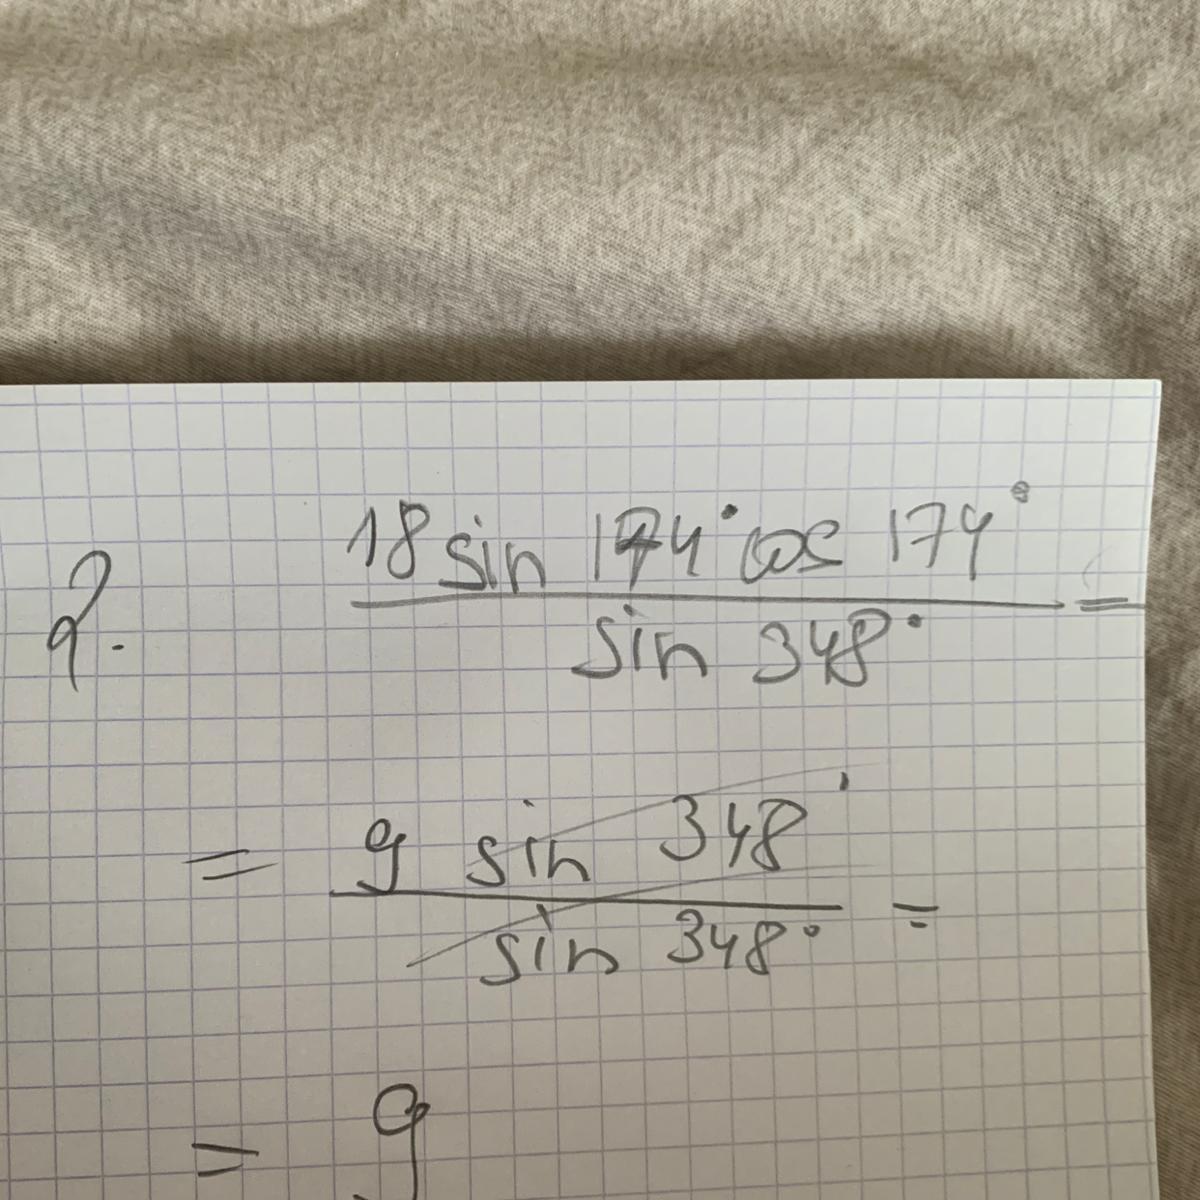 2.
18 sin 174° cos 174°
sin 348° =
= 9 sin 348°
sin 348° =
= 9